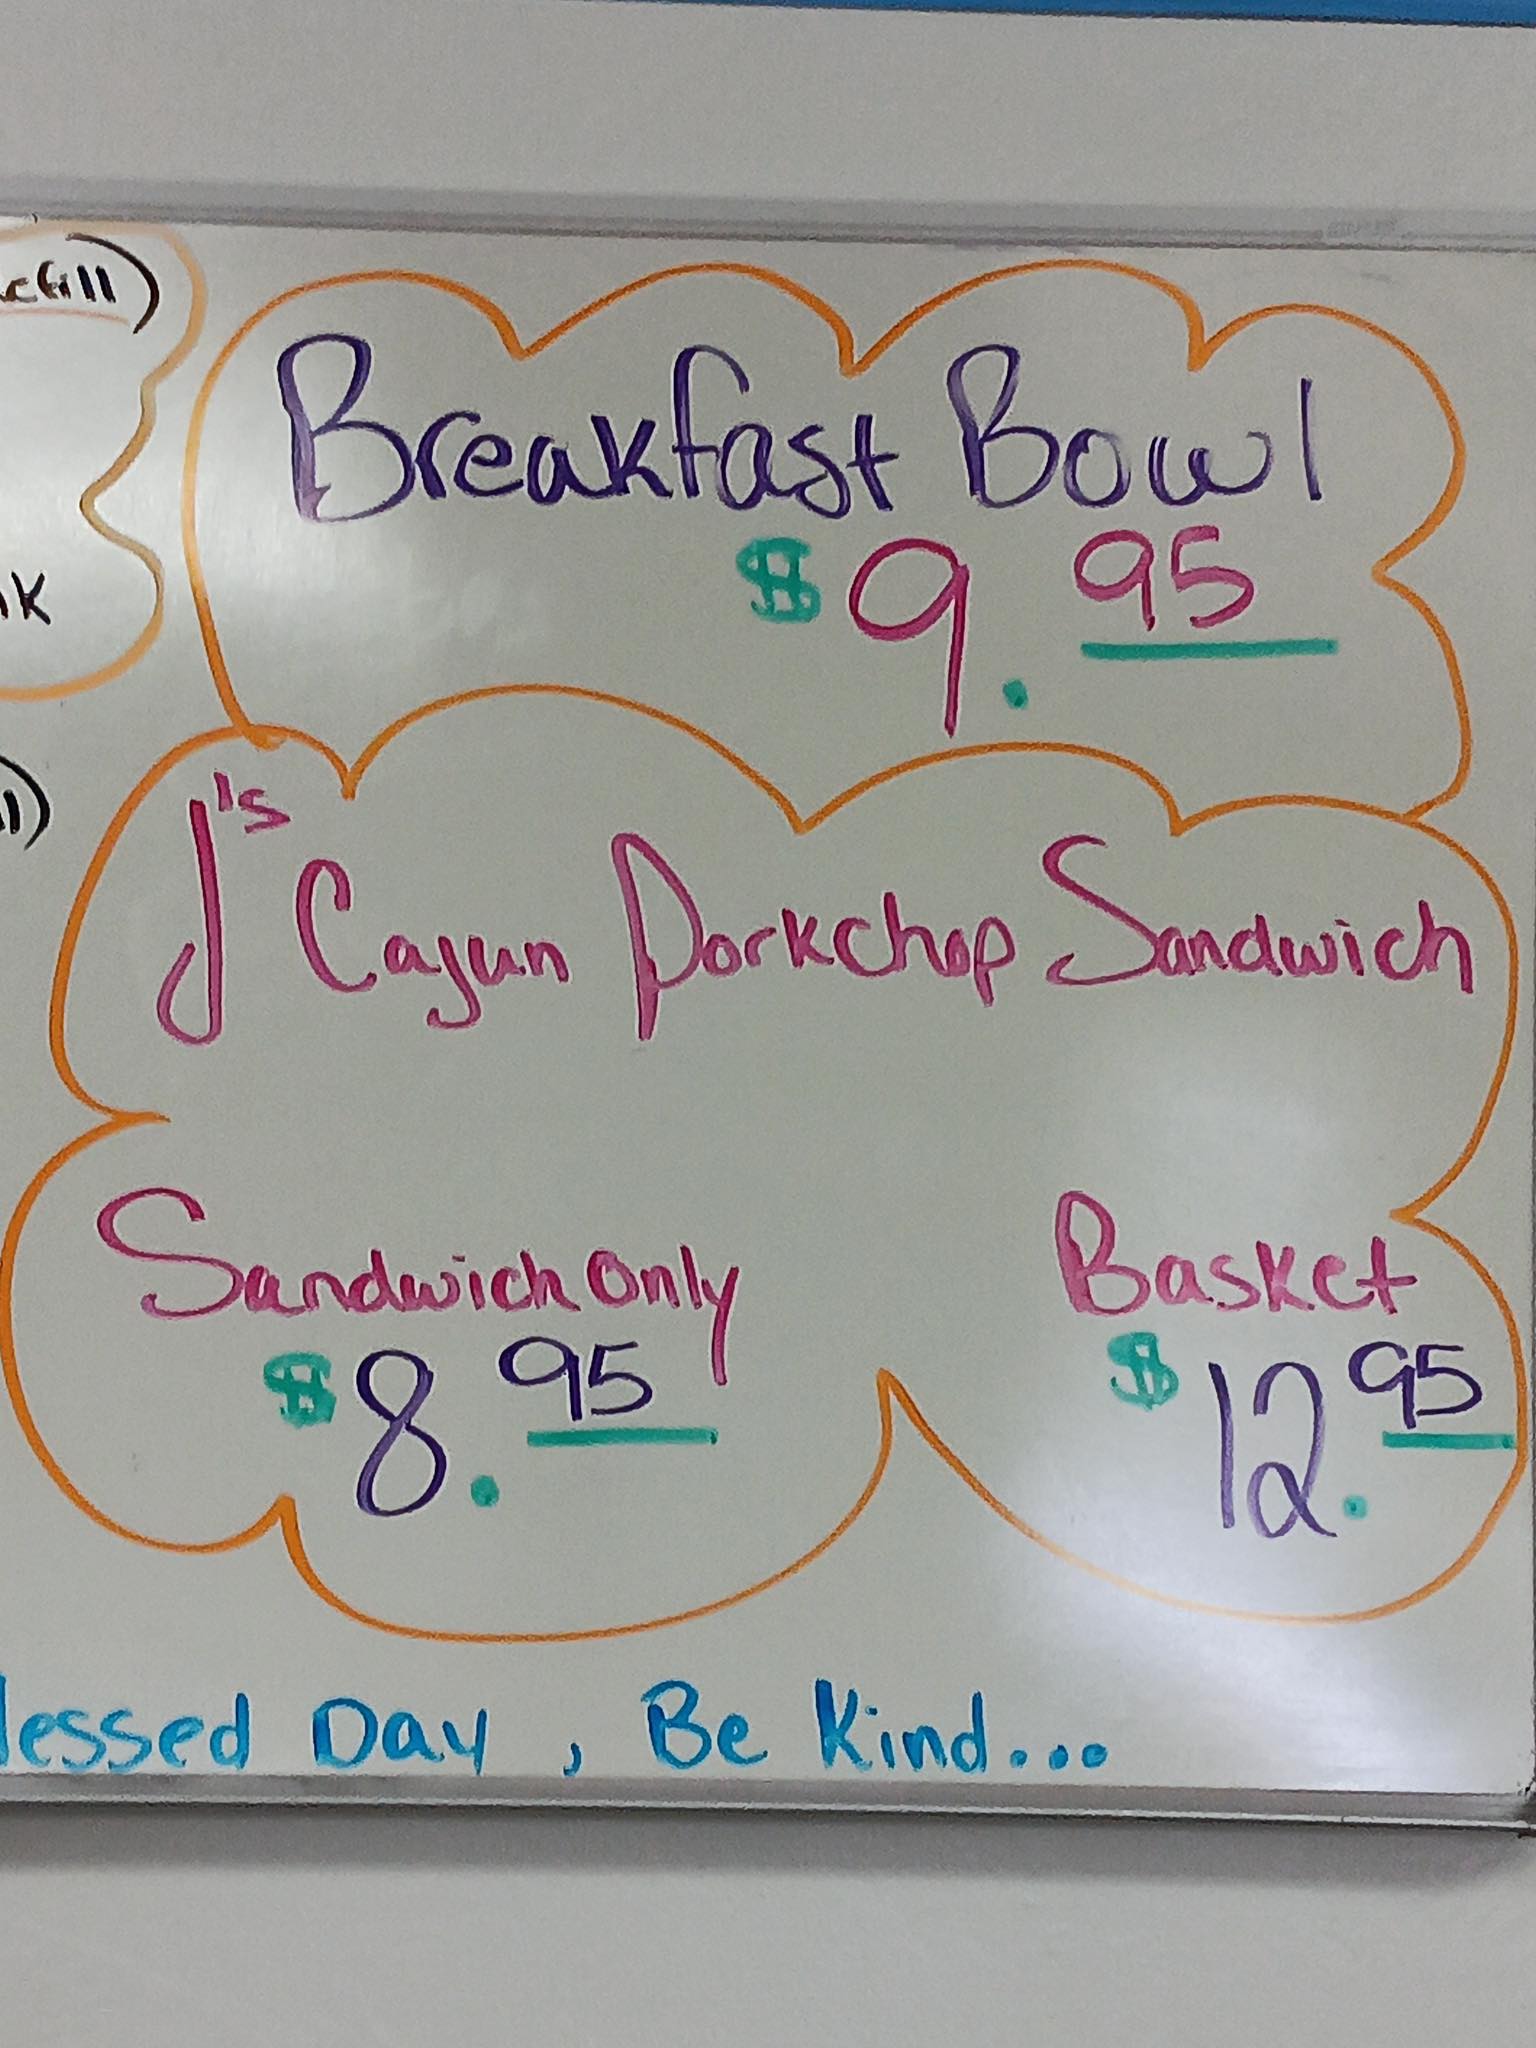 Breakfast Bowl
$9.95
J's Cajun Porkchop Sandwich
Sandwich Only
$8.95
Basket
$12.95
Day, Be Kind...